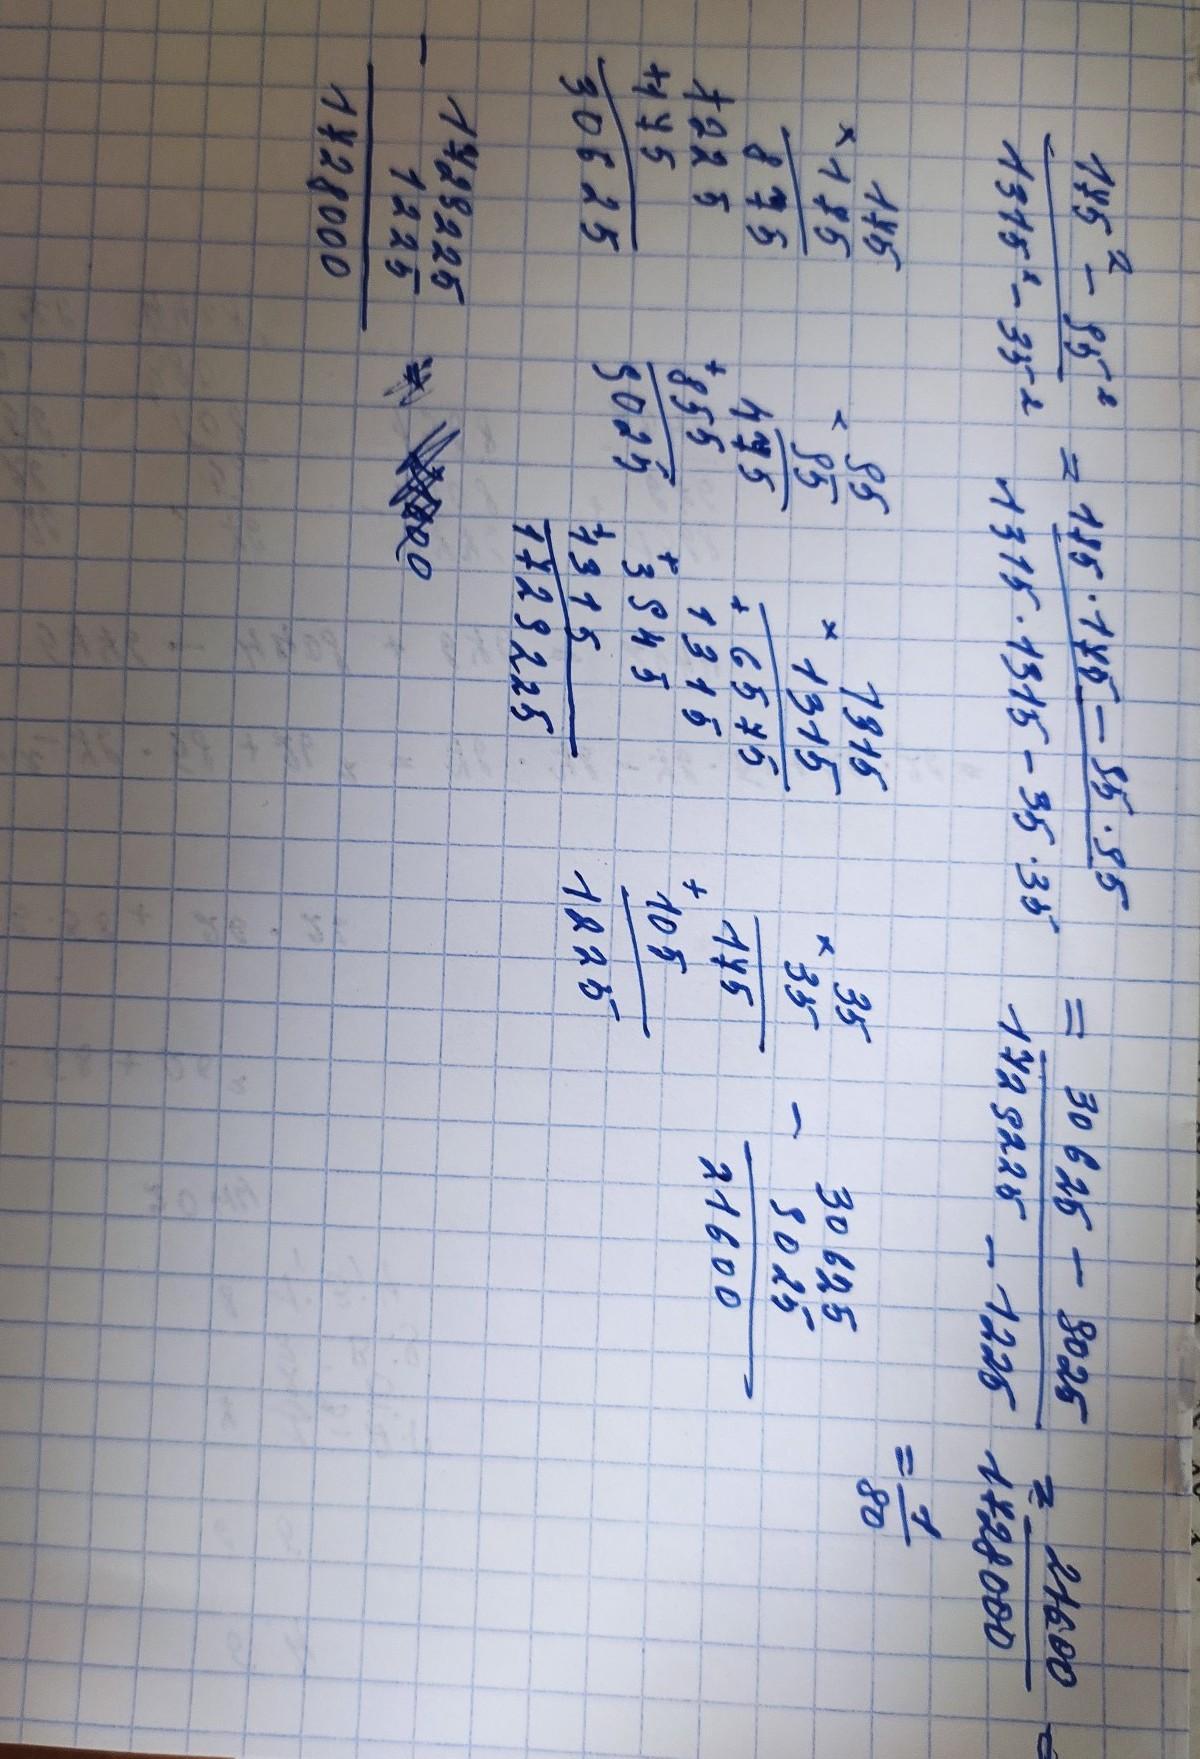 175² - 95² / 1315² - 35² = 175·175 - 95·95 / 1315·1315 - 35·35 = 30625 - 9025 / 1729225 - 1225 = 21600 / 1728000 =
= 1/80
175
× 175
875
+1225
+175
30625
95
× 95
475
+ 855
9025
1315
× 1315
+ 6575
1315
+ 3945
+1315
1729225
35
× 35
175
+ 105
1225
30625
- 9025
21600
1729225
- 1225
1728000